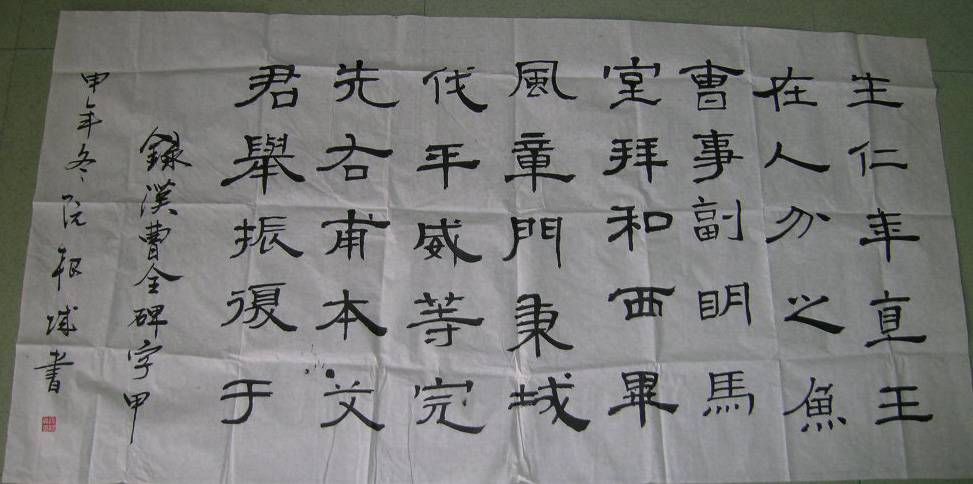 生仁年直王
在人分之魚
曹事副明馬
室拜和西畢
風章門秉城
伐平威等完
先右甫本文
君舉振復于
錄漢曹全碑字甲
申年冬阮根城書